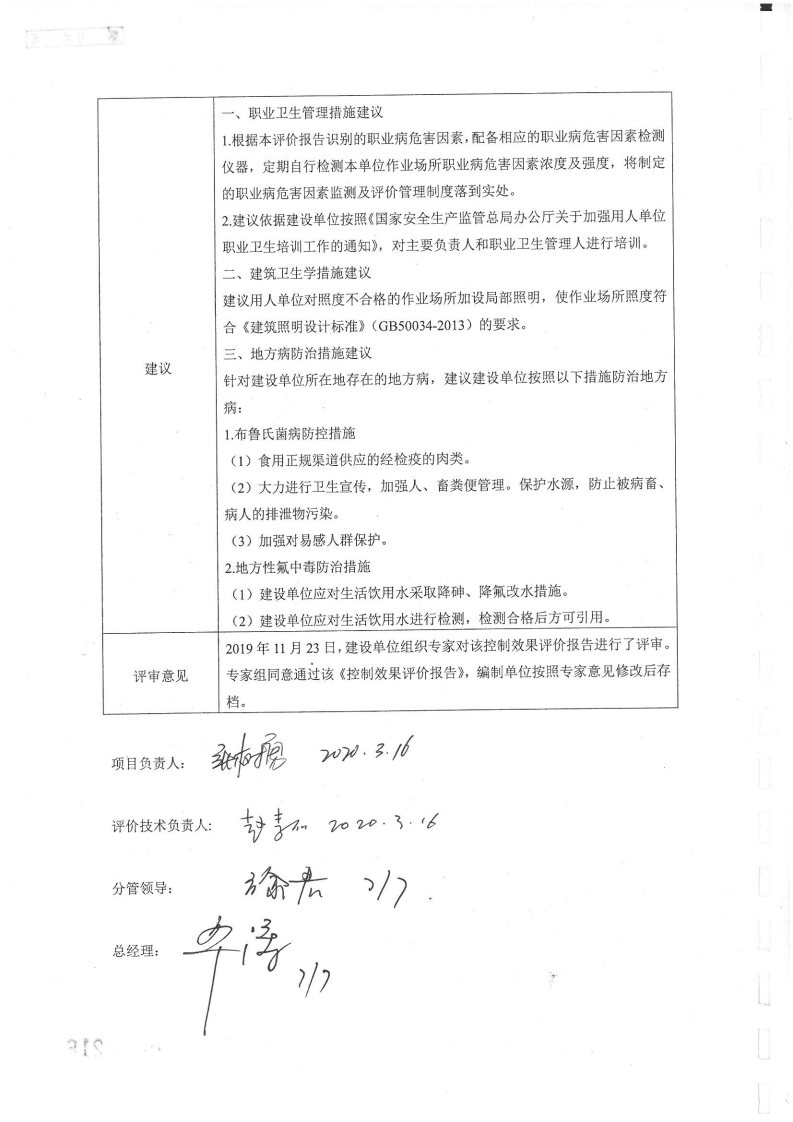 一、职业卫生管理措施建议
1.根据本评价报告识别的职业病危害因素，配备相应的职业病危害因素检测
仪器，定期自行检测本单位作业场所职业病危害因素浓度及强度，将制定
的职业病危害因素监测及评价管理制度落到实处。
2.建议依据建设单位按照《国家安全生产监管总局办公厅关于加强用人单位
职业卫生培训工作的通知》，对主要负责人和职业卫生管理人进行培训。
二、建筑卫生学措施建议
建议用人单位对照度不合格的作业场所加设局部照明，使作业场所照度符
合《建筑照明设计标准》（GB50034-2013）的要求。
三、地方病防治措施建议
建议
针对建设单位所在地存在的地方病，建议建设单位按照以下措施防治地方
病：
1.布鲁氏菌病防控措施
（1）食用正规渠道供应的经检疫的肉类。
（2）大力进行卫生宣传，加强人、畜粪便管理。保护水源，防止被病畜、
病人的排泄物污染。
（3）加强对易感人群保护。
2.地方性氟中毒防治措施
（1）建设单位应对生活饮用水采取降砷、降氟改水措施。
（2）建设单位应对生活饮用水进行检测，检测合格后方可引用。
2019 年 11 月 23 日，建设单位组织专家对该控制效果评价报告进行了评审。
评审意见
专家组同意通过该《控制效果评价报告》，编制单位按照专家意见修改后存
档。
项目负责人： 2020.3.16
评价技术负责人: 2020.3.16
分管领导：
总经理：